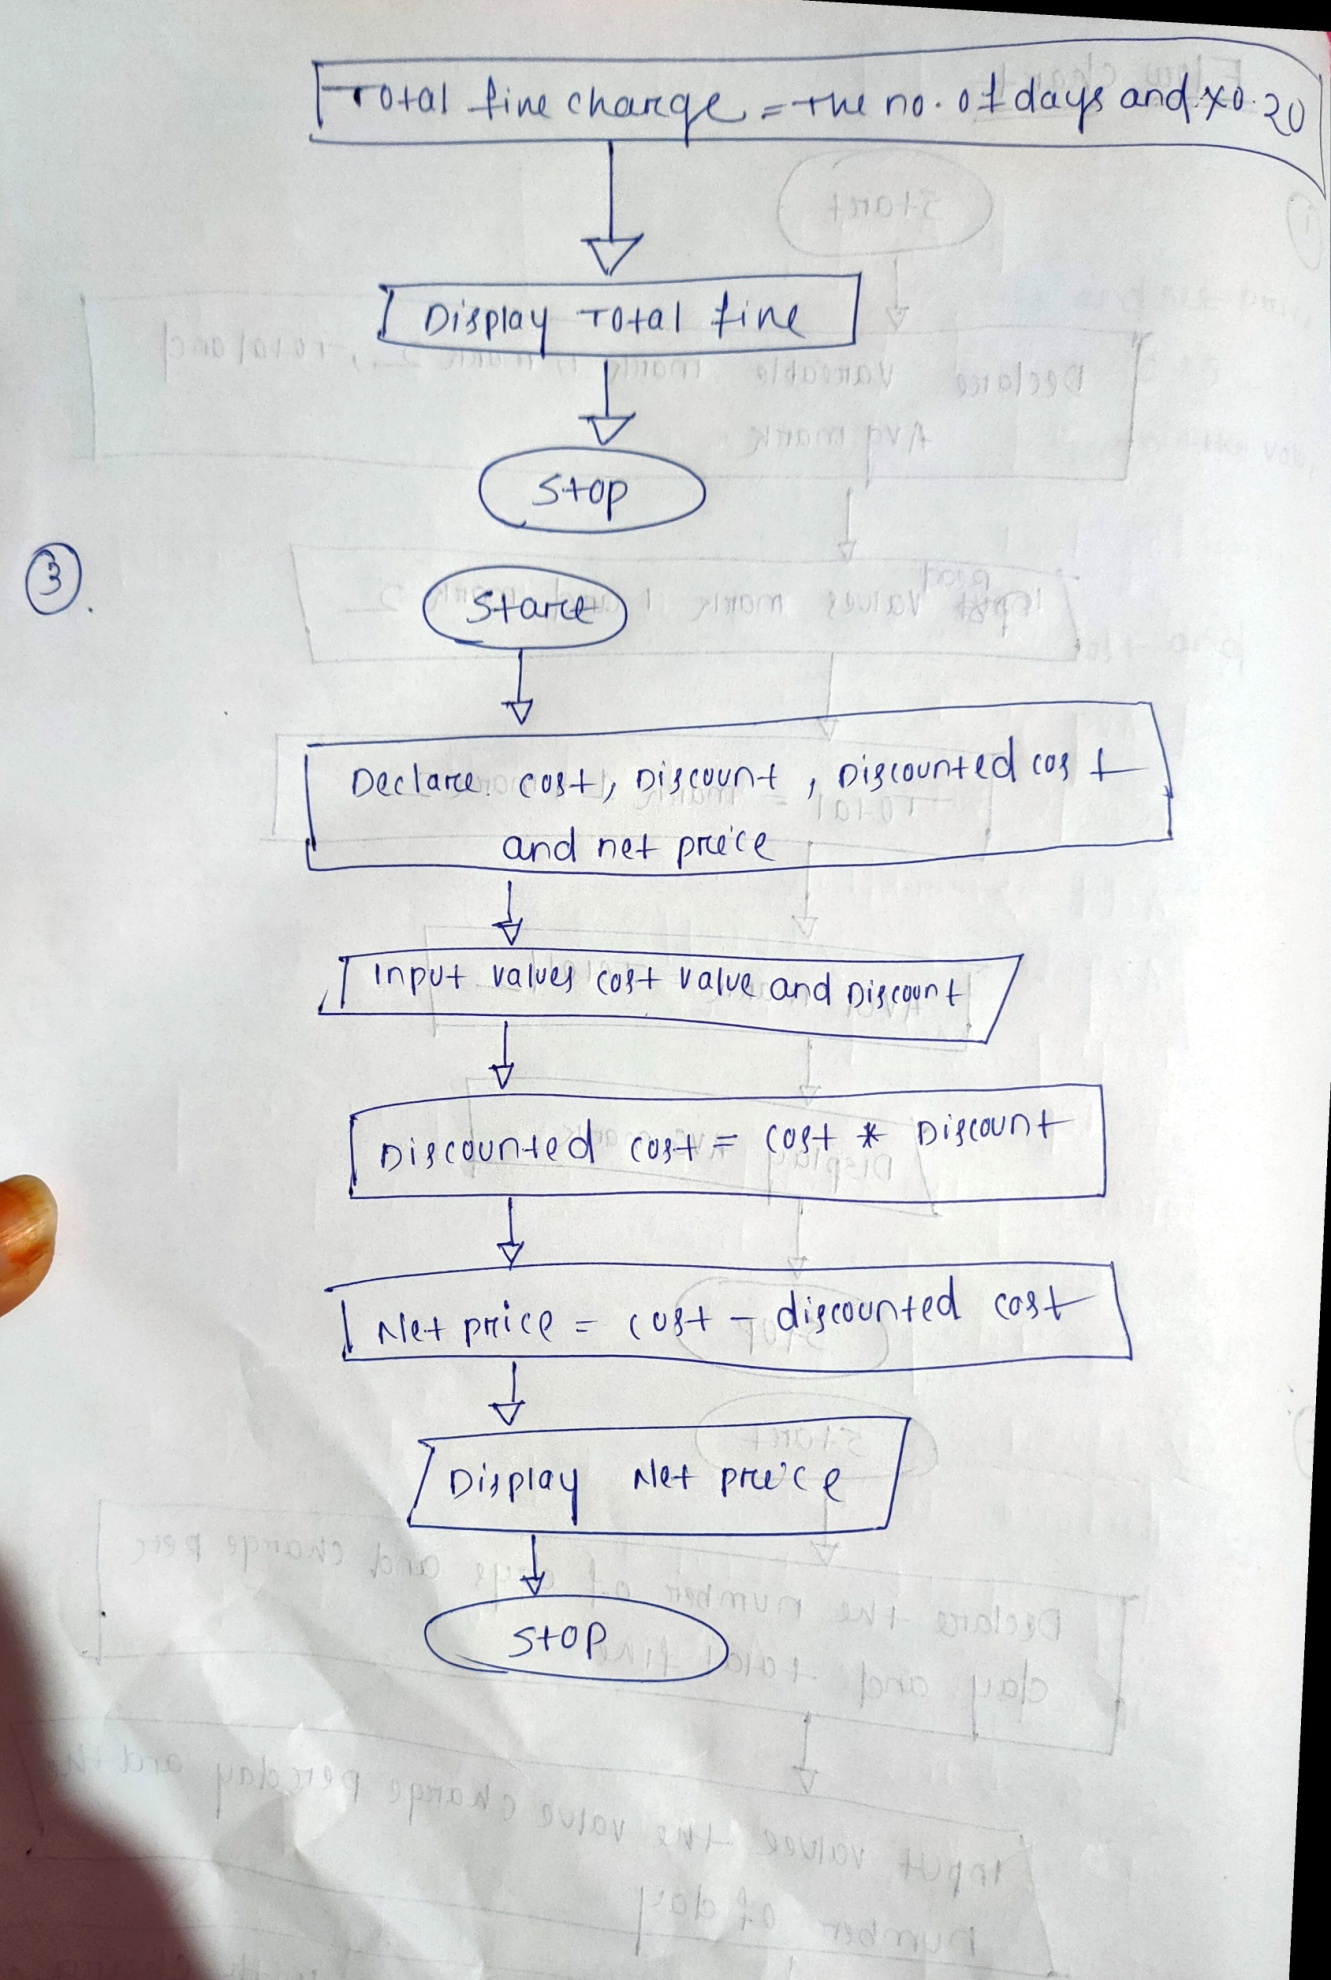 Total fine charge = the no. of days and x0.20
Display Total fine
Stop
3.
Start
Declare cost, Discount, Discounted cost
and net price
Input values cost value and Discount
Discounted cost = cost * Discount
Net price = cost - discounted cost
Display Net price
Stop